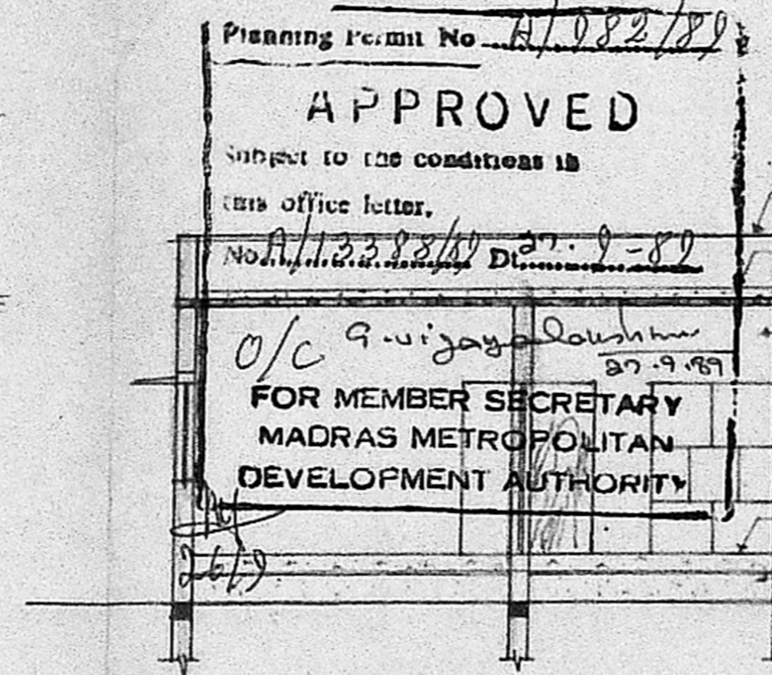 Planning Permit No A/982/89
APPROVED
Subject to the conditions in
this office letter.
No. A/13398/89 Dt. 27.9-89
O/C G. Vijayalakshmi
27.9.89
FOR MEMBER SECRETARY
MADRAS METROPOLITAN
DEVELOPMENT AUTHORITY
26/9